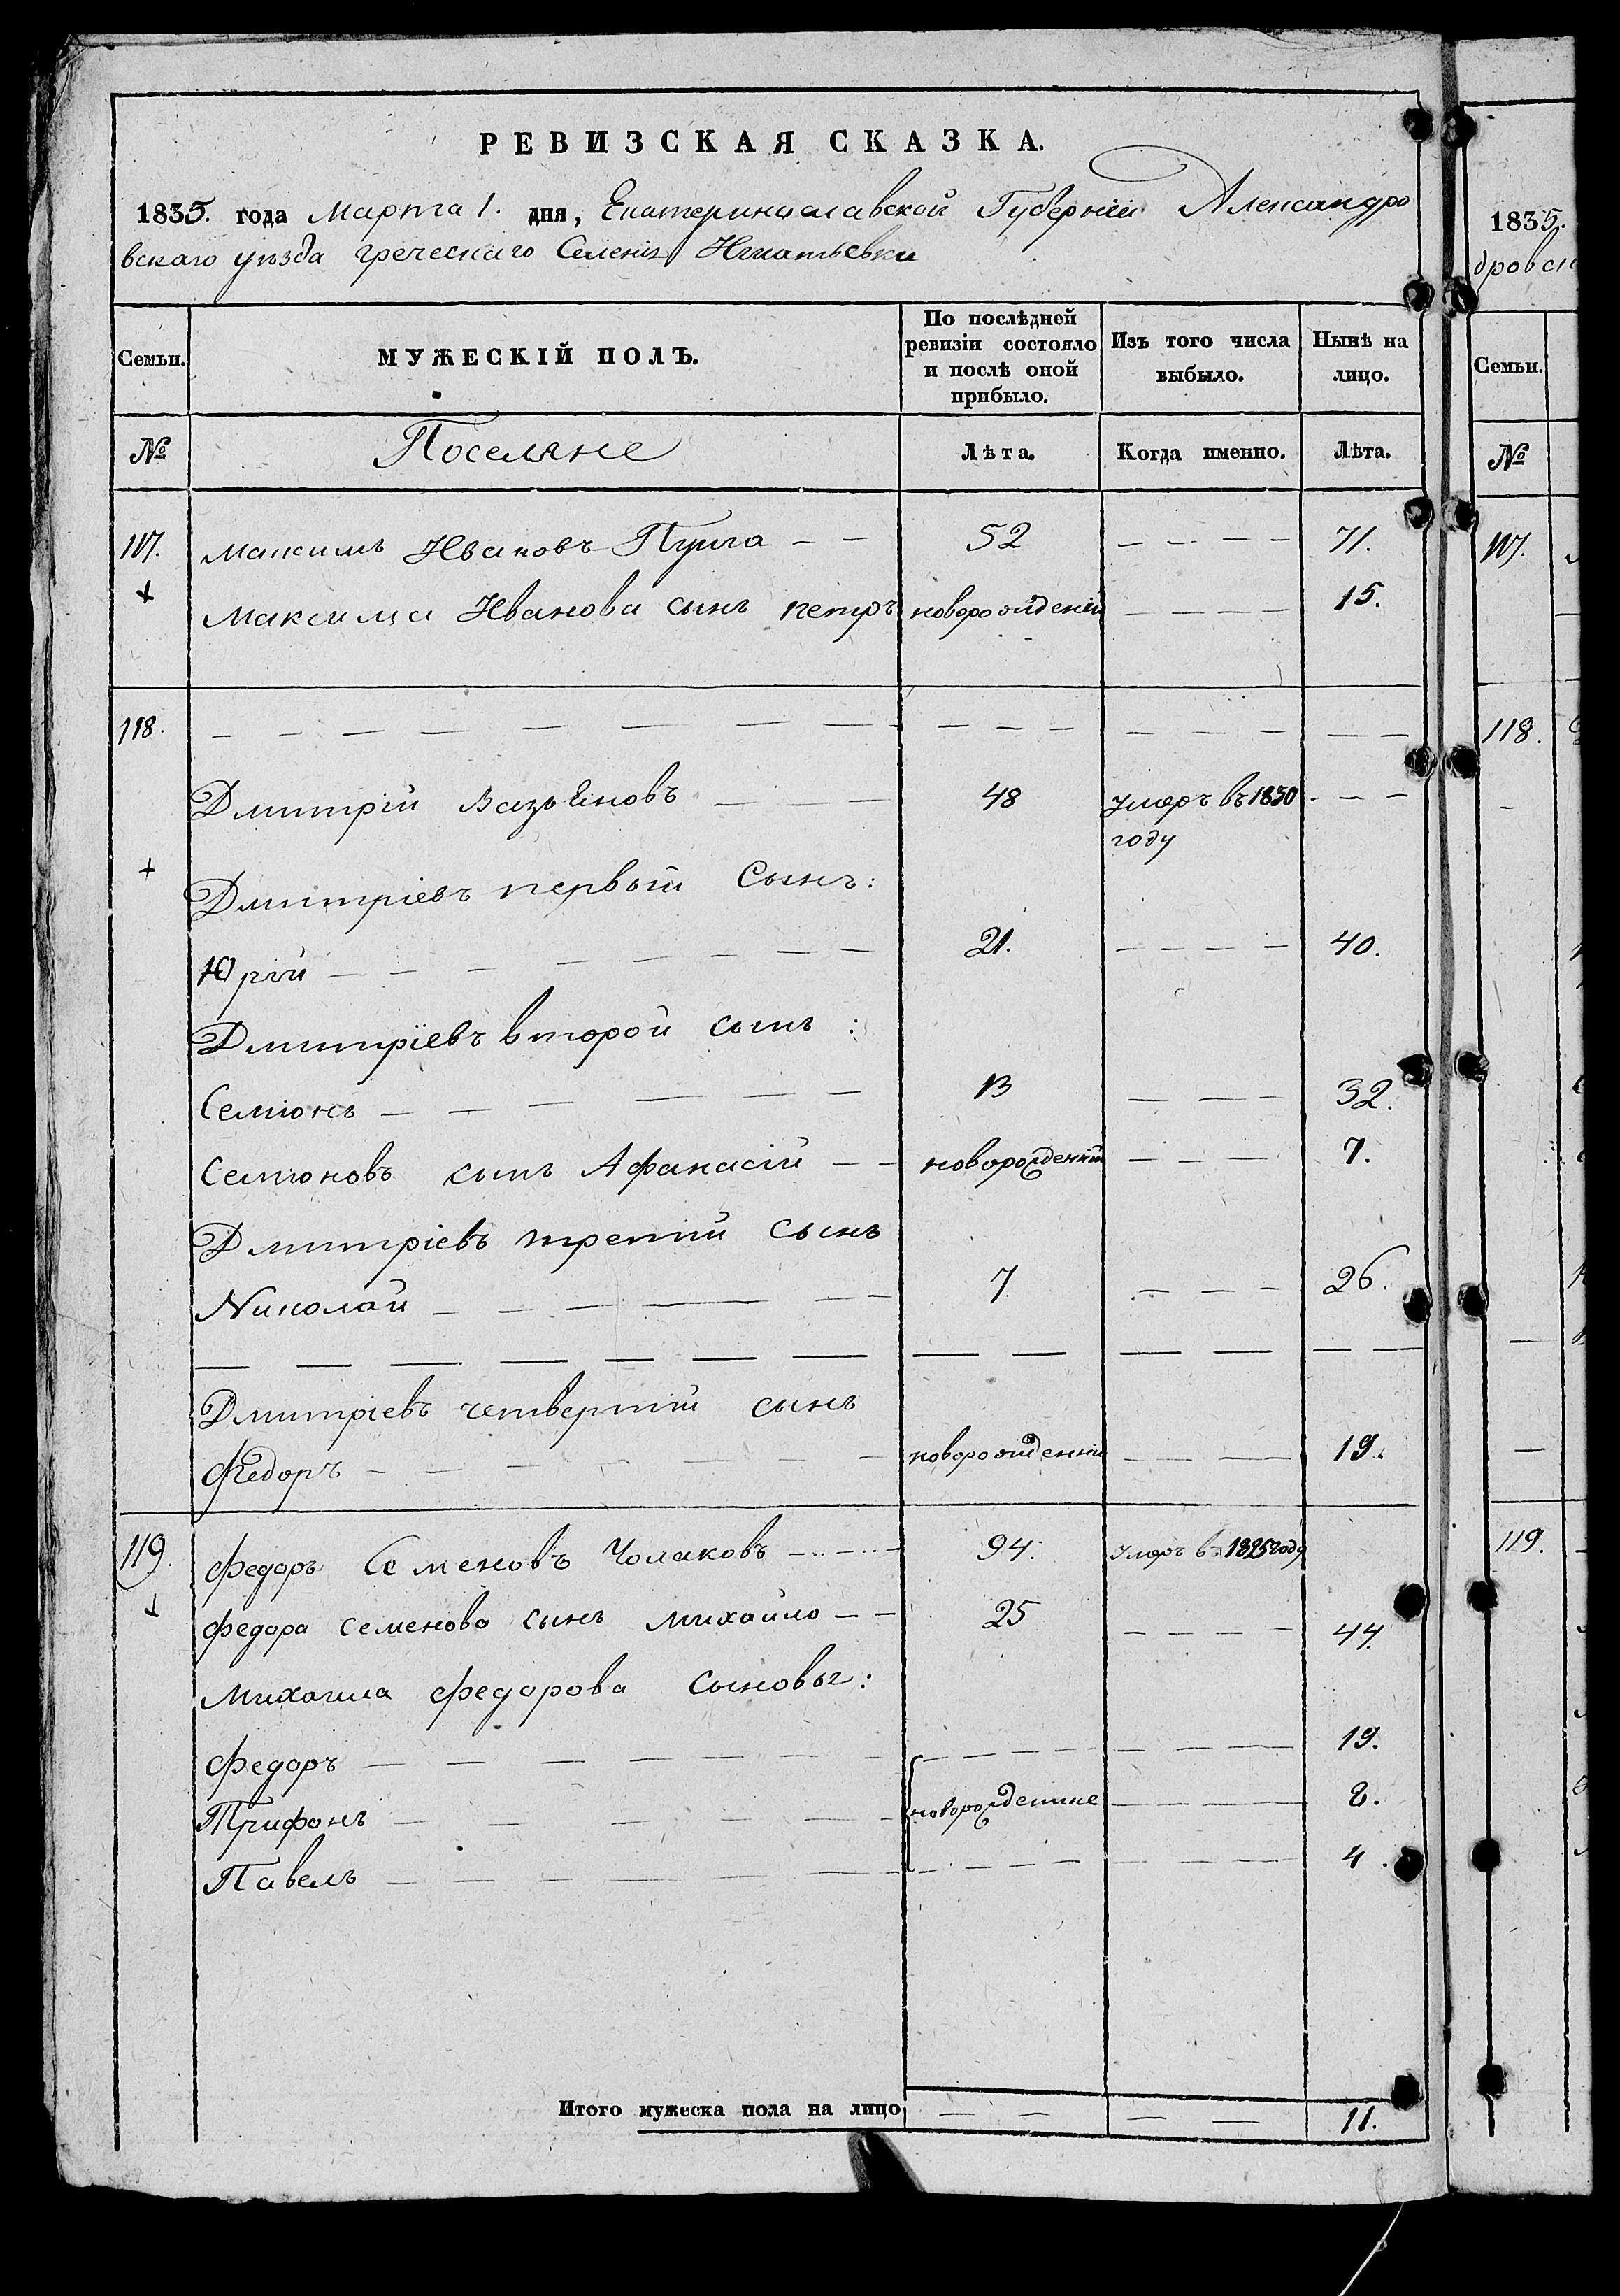 РЕВИЗСКАЯ СКАЗКА.
1835. года Марта 1. дня, Екатеринославской Губерніи Александро
вскаго уѣзда греческаго Селенія Игнатьевки
Семьи. МУЖЕСКІЙ ПОЛЪ. По послѣдней ревизіи состояло и послѣ оной прибыло. Изъ того числа выбыло. Нынѣ на лицо.
№ Поселяне Лѣта. Когда именно. Лѣта.
117. Максимъ Ивановъ — — 52 — — — — 71.
+ Максима Иванова сынъ петръ новорожденій — — — — 15.
118. — — — — — — — — — — — — — — — — — —
Дмитрій — — — 48 умеръ въ 1830 — — —
году
+ Дмитріевъ первый Сынъ:
Юрій — — — — — — — — 21. — — — — 40.
Дмитріевъ второй сынъ :
Семіонъ — — — — — — 13 — — — 32.
Семіоновъ сынъ Афанасій — — новорожденій — — — 7.
Дмитріевъ третій сынъ
Николай — — — — — — 7 — — — 26.
— — — — — — — — — — — — —
Дмитріевъ четвертій сынъ
Федоръ — — — — — — — новорожденій — — — 19.
119. федоръ Семеновъ Чолаковъ — — — 94. умеръ въ 1825 году
+ федора семенова сынъ михайло — — 25 — — — — 44.
Михаила федорова сыновья:
федоръ — — — — — — — — — — — — — — 19.
Трифонъ — — — — — новорожденные — — — 8.
Павелъ — — — — — — — — — — — — — 4.
Итого мужеска пола на лицо — — — — 11.
1835.
дровск
Семьи.
№
117.
118.
119.